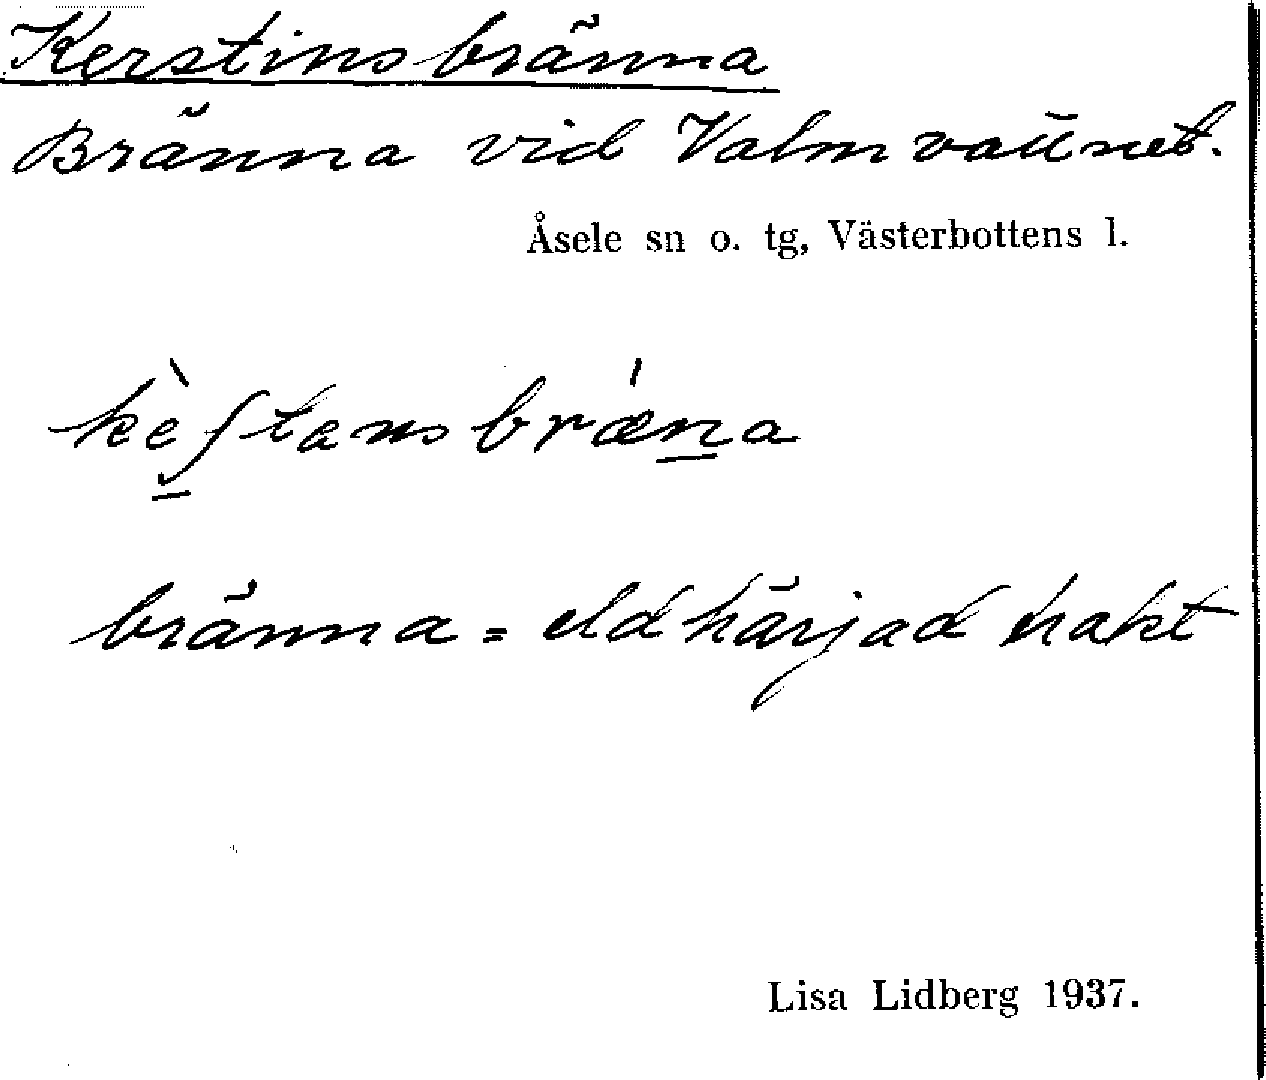 Kerstinsbränna
Bränna vid Valmvattnet.
Åsele sn o. tg, Västerbottens l.
bränna = eldhärjad trakt
Lisa Lidberg 1937.